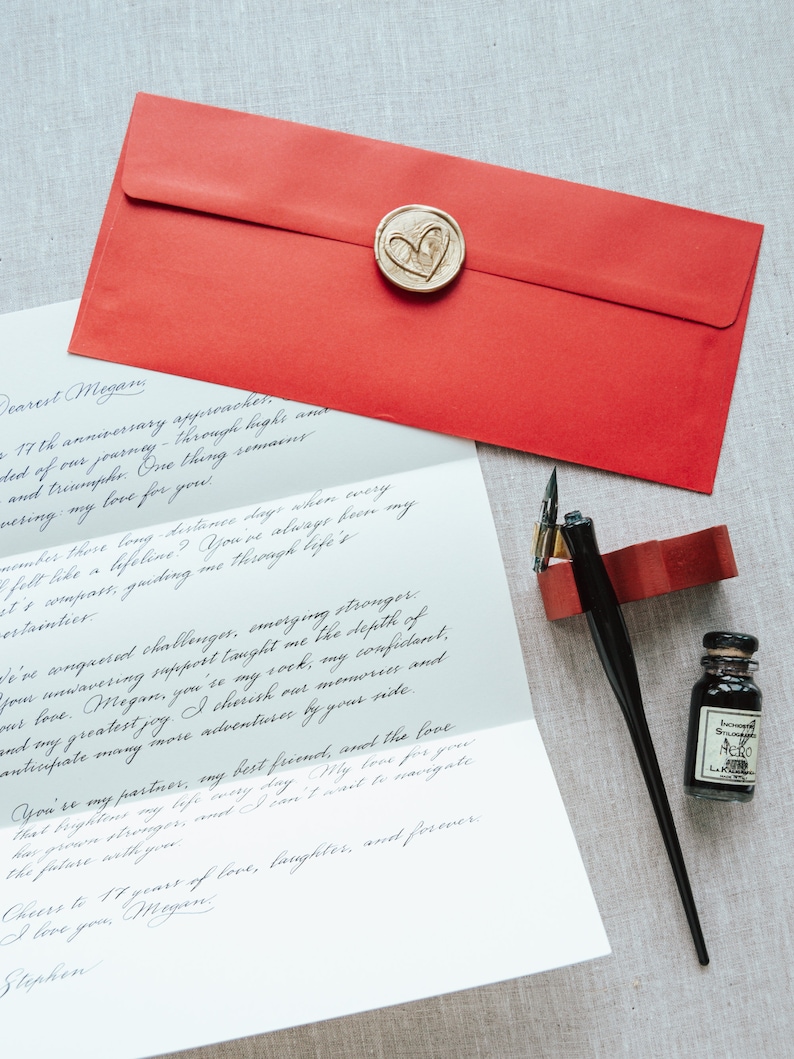 Dearest Megan,
17th anniversary approaches,
ded of our journey – through highs and
and triumphs. One thing remains
vering: my love for you.
member those long-distance days when every
felt like a lifeline? You've always been my
rt's compass, guiding me through life's
ertainties.
We've conquered challenges, emerging stronger.
Your unwavering support taught me the depth of
our love. Megan, you're my rock, my confidant,
and my greatest joy. I cherish our memories and
anticipate many more adventures by your side.
You're my partner, my best friend, and the love
that brightens my life every day. My love for you
has grown stronger, and I can't wait to navigate
the future with you.
Cheers to 17 years of love, laughter, and forever.
I love you, Megan.
Stephen
INCHIOSTR
STILOGRAFIC
NERO